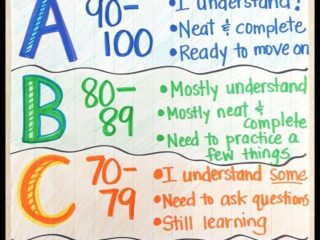 A 90- • I understand!
100 • Neat & complete
• Ready to move on
B 80- • Mostly understand
89 • Mostly neat &
complete
• Need to practice a
few things
C 70- • I understand Some
79 • Need to ask questions
• Still learning